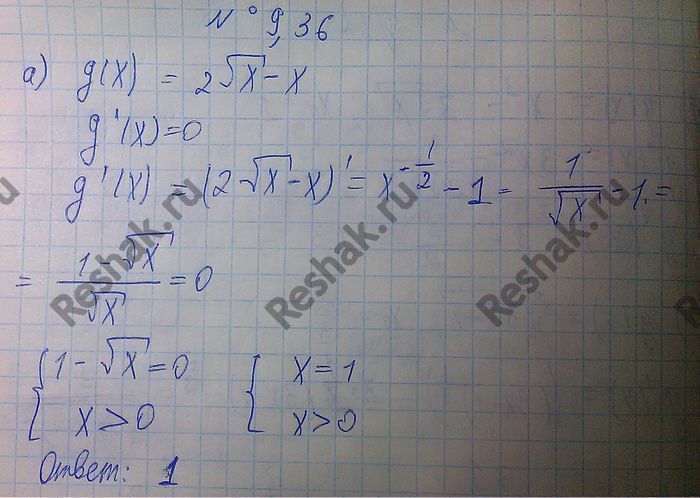 № 9,36
а) g(x) = 2√x - x
g'(x) = 0
g'(x) = (2√x - x)' = x^(-1/2) - 1 = 1/√x - 1 =
= (1 - √x)/√x = 0
{ 1 - √x = 0 { x = 1
x > 0 x > 0
Ответ: 1
Reshak.ru
Reshak.ru
Reshak.ru
Reshak.ru